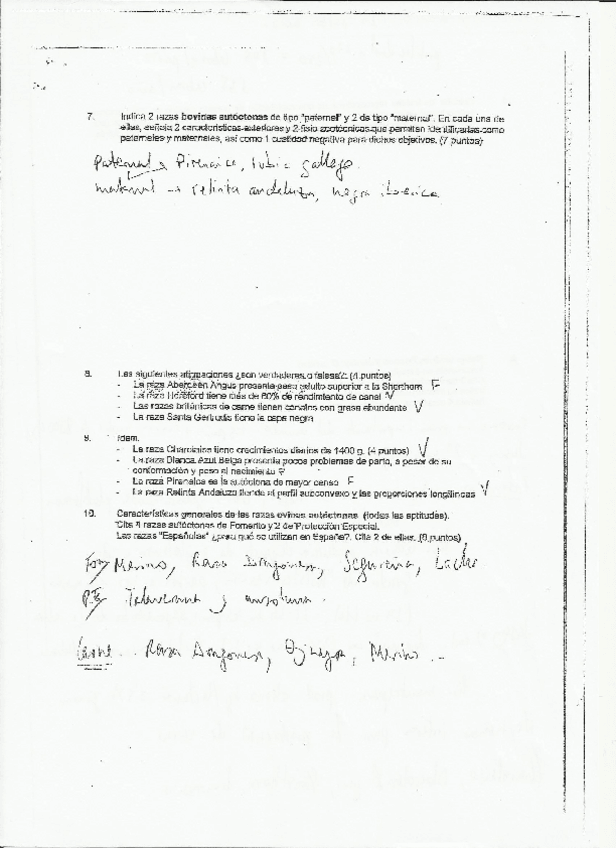 7. Indica 2 razas bovinas autóctonas de tipo "paternal" y 2 de tipo "maternal". En cada una de
ellas, señala 2 características exteriores y 2 fisio zootécnicas que permitan identificarlas como
paternales y maternales, así como 1 cualidad negativa para dichos objetivos. (7 puntos)
Paternal → Pirenaica, rubia gallega.
maternal → retinta andaluza, negra iberica
8. Las siguientes afirmaciones ¿son verdaderas o falsas?: (4 puntos)
- La raza Aberdeen Angus presenta peso adulto superior a la Shorthorn F
- La raza Hereford tiene más de 60% de rendimiento de canal V
- Las razas británicas de carne tienen canales con grasa abundante V
- La raza Santa Gertrudis tiene la capa negra
9. Idem.
- La raza Charolesa tiene crecimientos diarios de 1400 g. (4 puntos) V
- La raza Blanca Azul Belga presenta pocos problemas de parto, a pesar de su
conformación y peso al nacimiento F
- La raza Pirenaica es la autóctona de mayor censo F
- La raza Retinta Andaluza tiende al perfil subconvexo y las proporciones longilíneas V
10. Características generales de las razas ovinas autóctonas (todas las aptitudes).
Cita 4 razas autóctonas de Fomento y 2 de Protección Especial.
Las razas "Españolas" ¿para qué se utilizan en España?. Cita 2 de ellas. (8 puntos)
Merino, Rasa Aragonesa, Segureña, Lacha
P.E Talaverana y
Carne Rasa Aragonesa, Ojalada, Merino